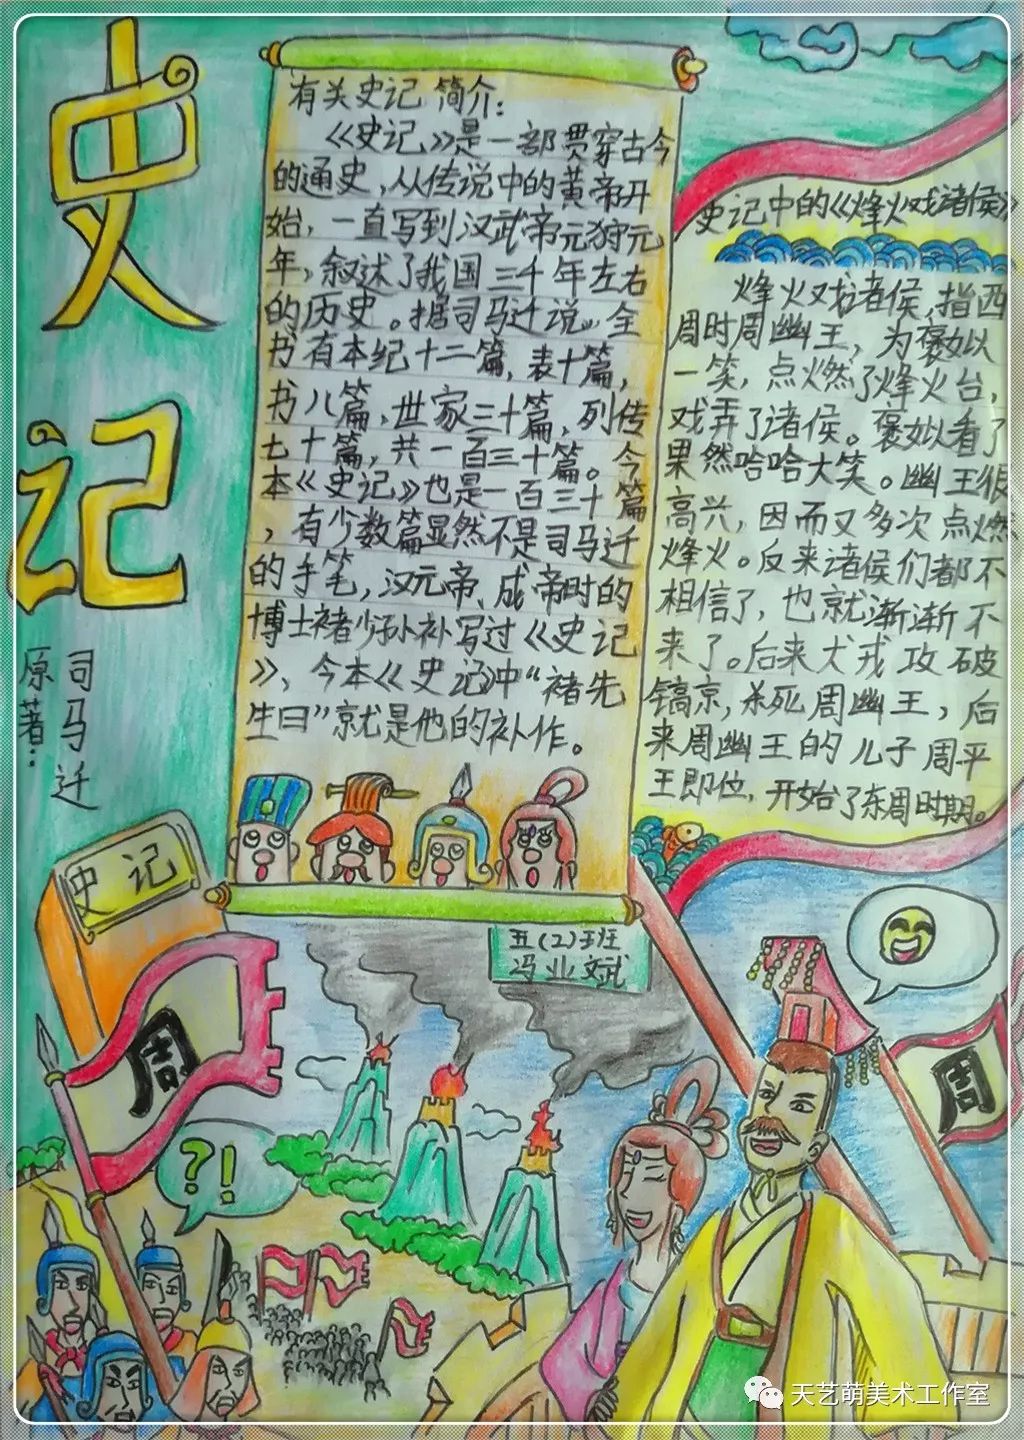 史记
司马迁
原著：
有关史记 简介：
《史记》是一部贯穿古今
的通史，从传说中的黄帝开
始，一直写到汉武帝元狩元
年，叙述了我国三千年左右
的历史。据司马迁说，全
书有本纪十二篇，表十篇，
书八篇，世家三十篇，列传
七十篇，共一百三十篇。今
本《史记》也是一百三十篇
，有少数篇显然不是司马迁
的手笔，汉元帝、成帝时的
博士褚少孙补写过《史记
》，今本《史记》中“褚先
生曰”就是他的补作。
史记中的《烽火戏诸侯》
烽火戏诸侯，指西
周时周幽王，为褒姒
一笑，点燃了烽火台，
戏弄了诸侯。褒姒看了
果然哈哈大笑。幽王很
高兴，因而又多次点燃
烽火。反来诸侯们都不
相信了，也就渐渐不
来了。后来犬戎攻破
镐京，杀死周幽王，后
来周幽王的儿子周平
王即位，开始了东周时期。
史记
五(2)班
冯业斌
周
周
?!
天艺萌美术工作室